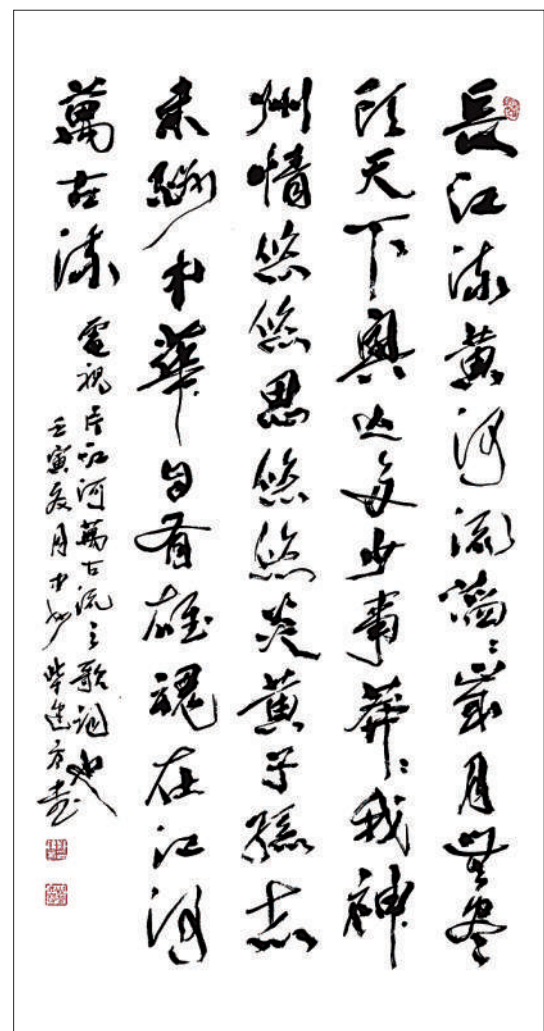 長江流黄河流滔〻歲月無盡
頭天下興亡多少事莽〻我神
州情悠悠思悠悠炎黄子孫志
未酬中華自有雄魂在江河
萬古流
電視片江河萬古流之歌詞也
壬寅夏月 柴建方書